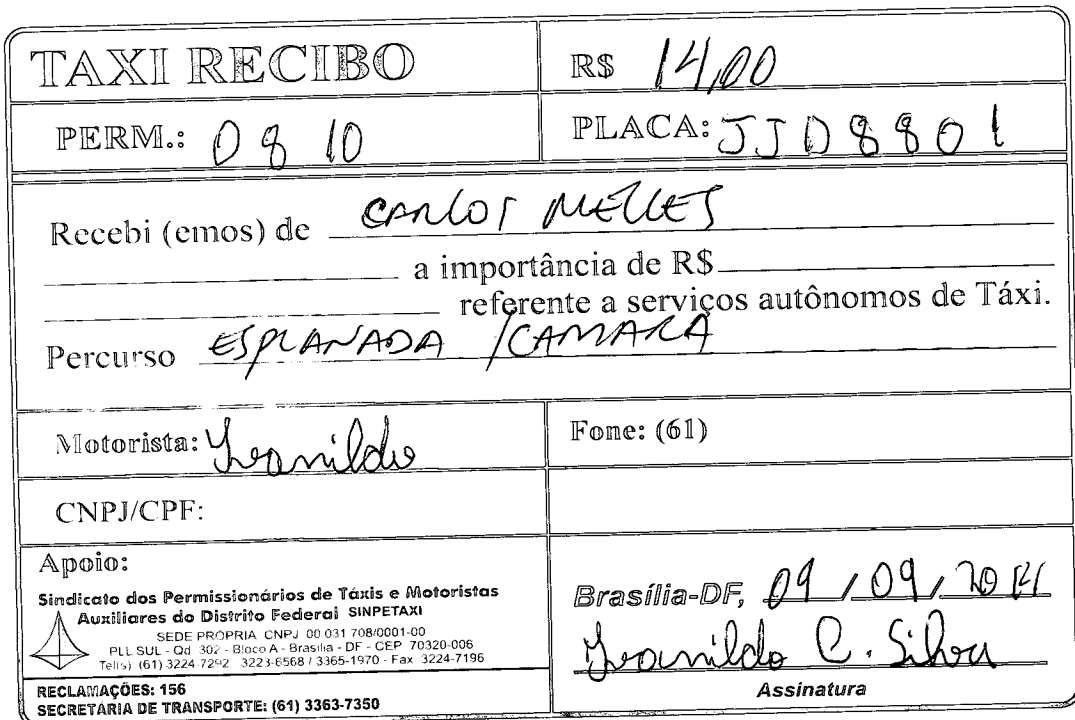 TAXI RECIBO
R$ 14,00
PERM.: 0810
PLACA: JJD8801
Recebi (emos) de CARLOS MELLES
a importância de R$
referente a serviços autônomos de Táxi.
Percurso ESPLANADA / CAMARA
Motorista: Ivanildo
Fone: (61)
CNPJ/CPF:
Apoio:
Sindicato dos Permissionários de Táxis e Motoristas
Auxiliares do Distrito Federal SINPETAXI
SEDE PRÓPRIA CNPJ 00 031 708/0001-00
PLL SUL - Qd 302 - Bloco A - Brasília - DF - CEP 70320-006
Tel(s) (61) 3224-7292 3223-6568 / 3365-1970 - Fax 3224-7196
RECLAMAÇÕES: 156
SECRETARIA DE TRANSPORTE: (61) 3363-7350
Brasília-DF, 09 / 09 / 2014
Ivanildo C. Silva
Assinatura